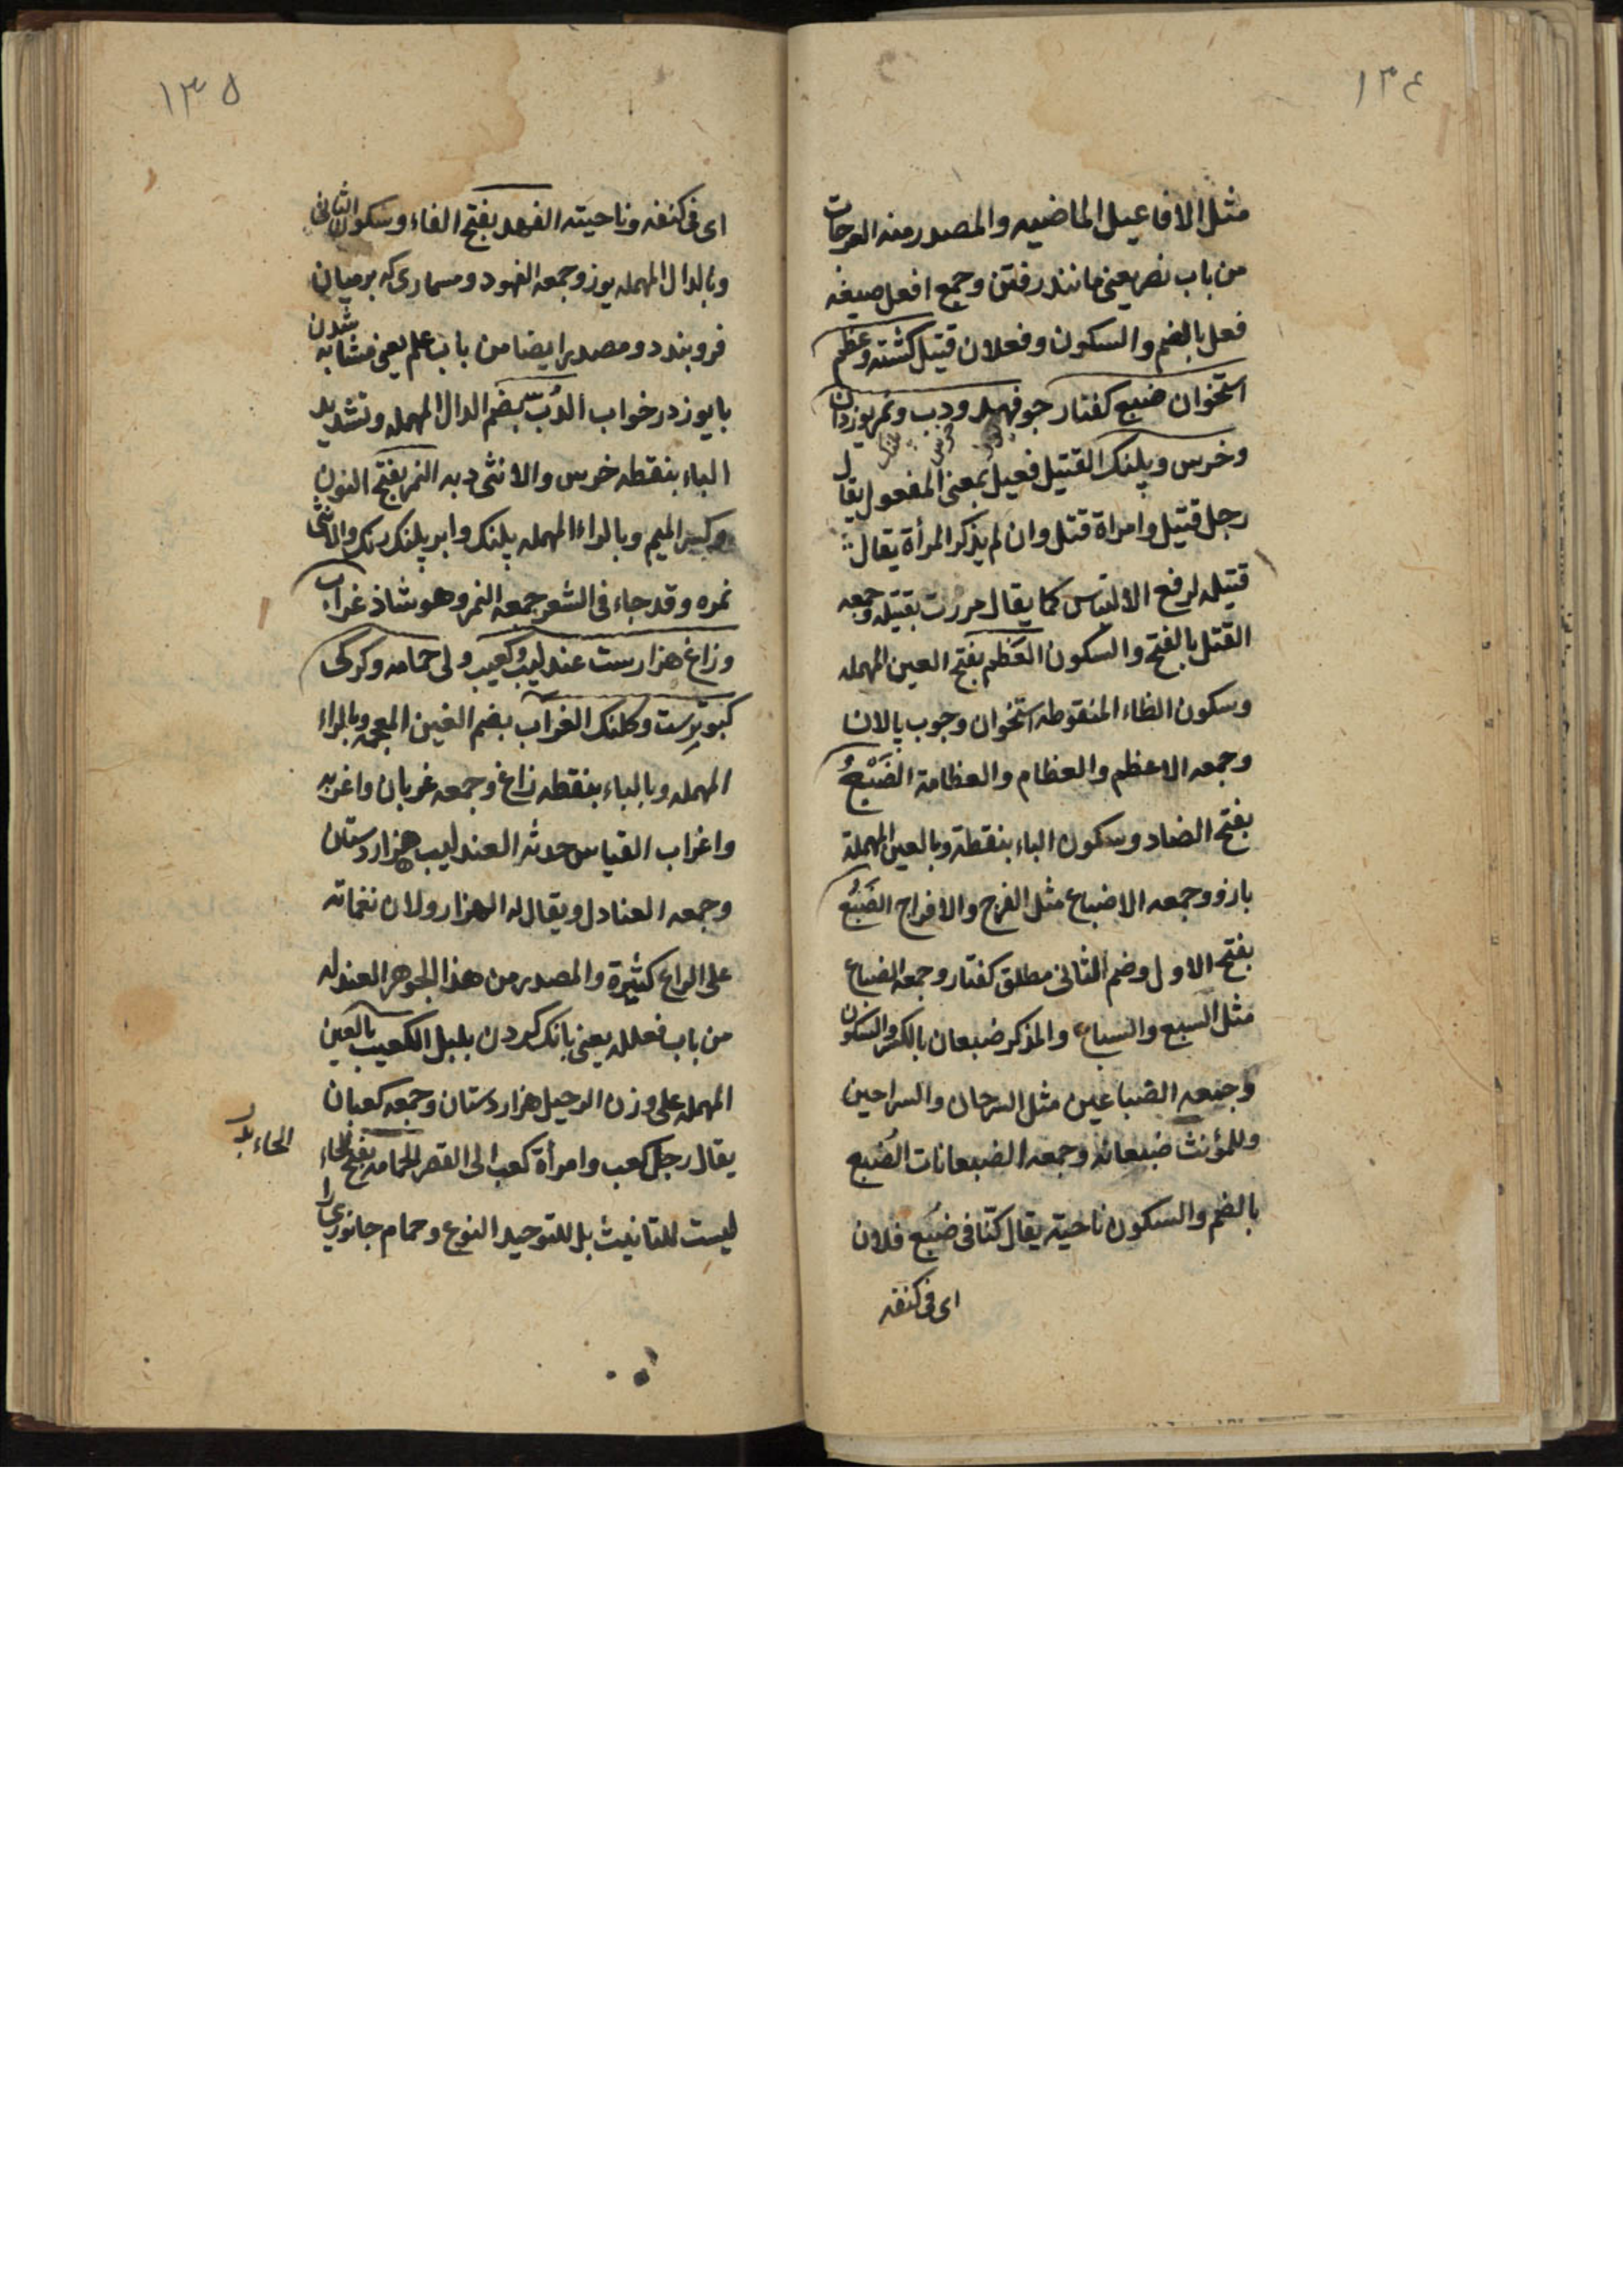 ١٣٤
مثل الافاعيل الماضيه والمصدر منه العرجات
من باب نصر يعني مانند رفتن وجمع افعل صيغه
فعل بالضم والسكون وفعلان قتيل كشته وعظم
استخوان ضبع كفتار جو فهد ودب ونمر يوزدان
وخرس وپلنك القتيل فعيل بمعنى المفعول يقال
رجل قتيل وامراة قتل وان لم يذكر المرأة يقال
قتيله لرفع الالتباس كما يقال مررت بقتيله وجمعه
القتل بالفتح والسكون العَظم بفتح العين المهمله
وسكون الظاء المنقوطه استخوان وجوب پالان
وجمعه الاعظم والعظام والعظامة الضَبْعُ
بفتح الضاد وسكون الباء بنقطة وبالعين المهملة
بازو وجمعه الاضباع مثل الفرج والافراج الضَبُع
بفتح الاول وضم الثانى مطلق كفتار وجمعه الضباع
مثل السبع والسباع والمذكر ضبعان بالكسر والسكون
وجمعه الضباعين مثل السرحان والسراحين
وللمؤنث ضبعانه وجمعه الضبعانات الضُبع
بالضم والسكون ناحيته يقال كنّا فى ضبُع فلان
اى فى كنفه
١٣٥
اى فى كنفه وناحيته الفهد بفتح الفاء وسكون الثانى
وبالدال المهمله يوز وجمعه الفهود ومسمارى كه برميان
فروبندد ومصدر ايضا من باب علم يعنى مشابه شدن
بايوز در خواب الدُبّ بضم الدال المهمله وتشديد
الباء بنقطه خرس والانثى دبه النمر بفتح النون
وكسر الميم وبالراء المهمله پلنك وابر پلنك رنك والانثى
نمره وقد جاء فى الشعر جمعه النمر وهو شاذ غراب
وزاغ هزارست عندليب وكعيب ولى حمامه وكركى
كبوترست وكلنك الغراب بضم الغين المعجمه وبالراء
المهمله وبالباء بنقطه زاغ وجمعه غربان واغربه
واغراب القياس حدثه العندليب هزاردستان
وجمعه العنادل ويقال له الهزار ولان نغماته
على الراع كثيرة والمصدر من هذا الجوهر العندله
من باب فعلله يعنى بانك كردن بلبل الكعيب بالعين
المهمله على وزن الرحيل هزاردستان وجمعه كعبان
يقال رجل كعب وامرأة كعب الى القصر الحمامه بفتح الحاء
الحاء بدر
ليست للتانيث بل للتوحيد النوع وحمام جانورى را